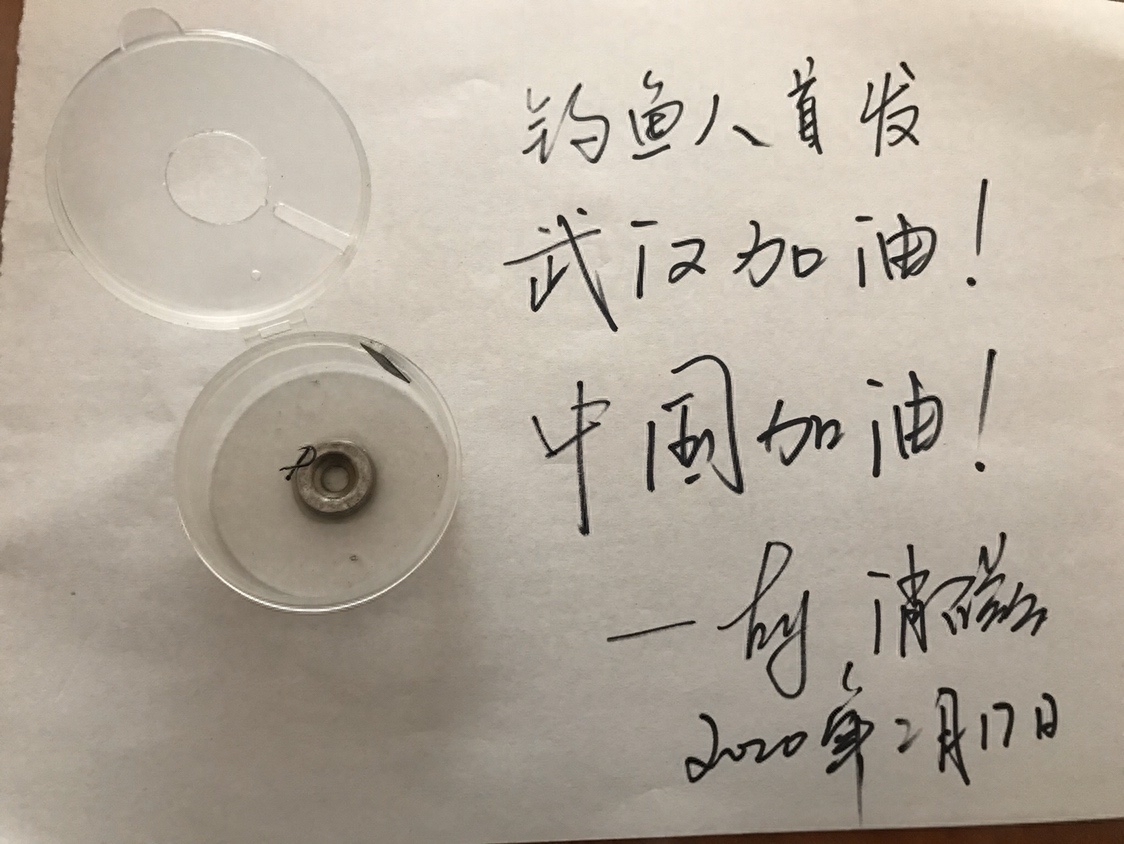 钓鱼人首发
武汉加油！
中国加油！
消磁
2020年2月17日